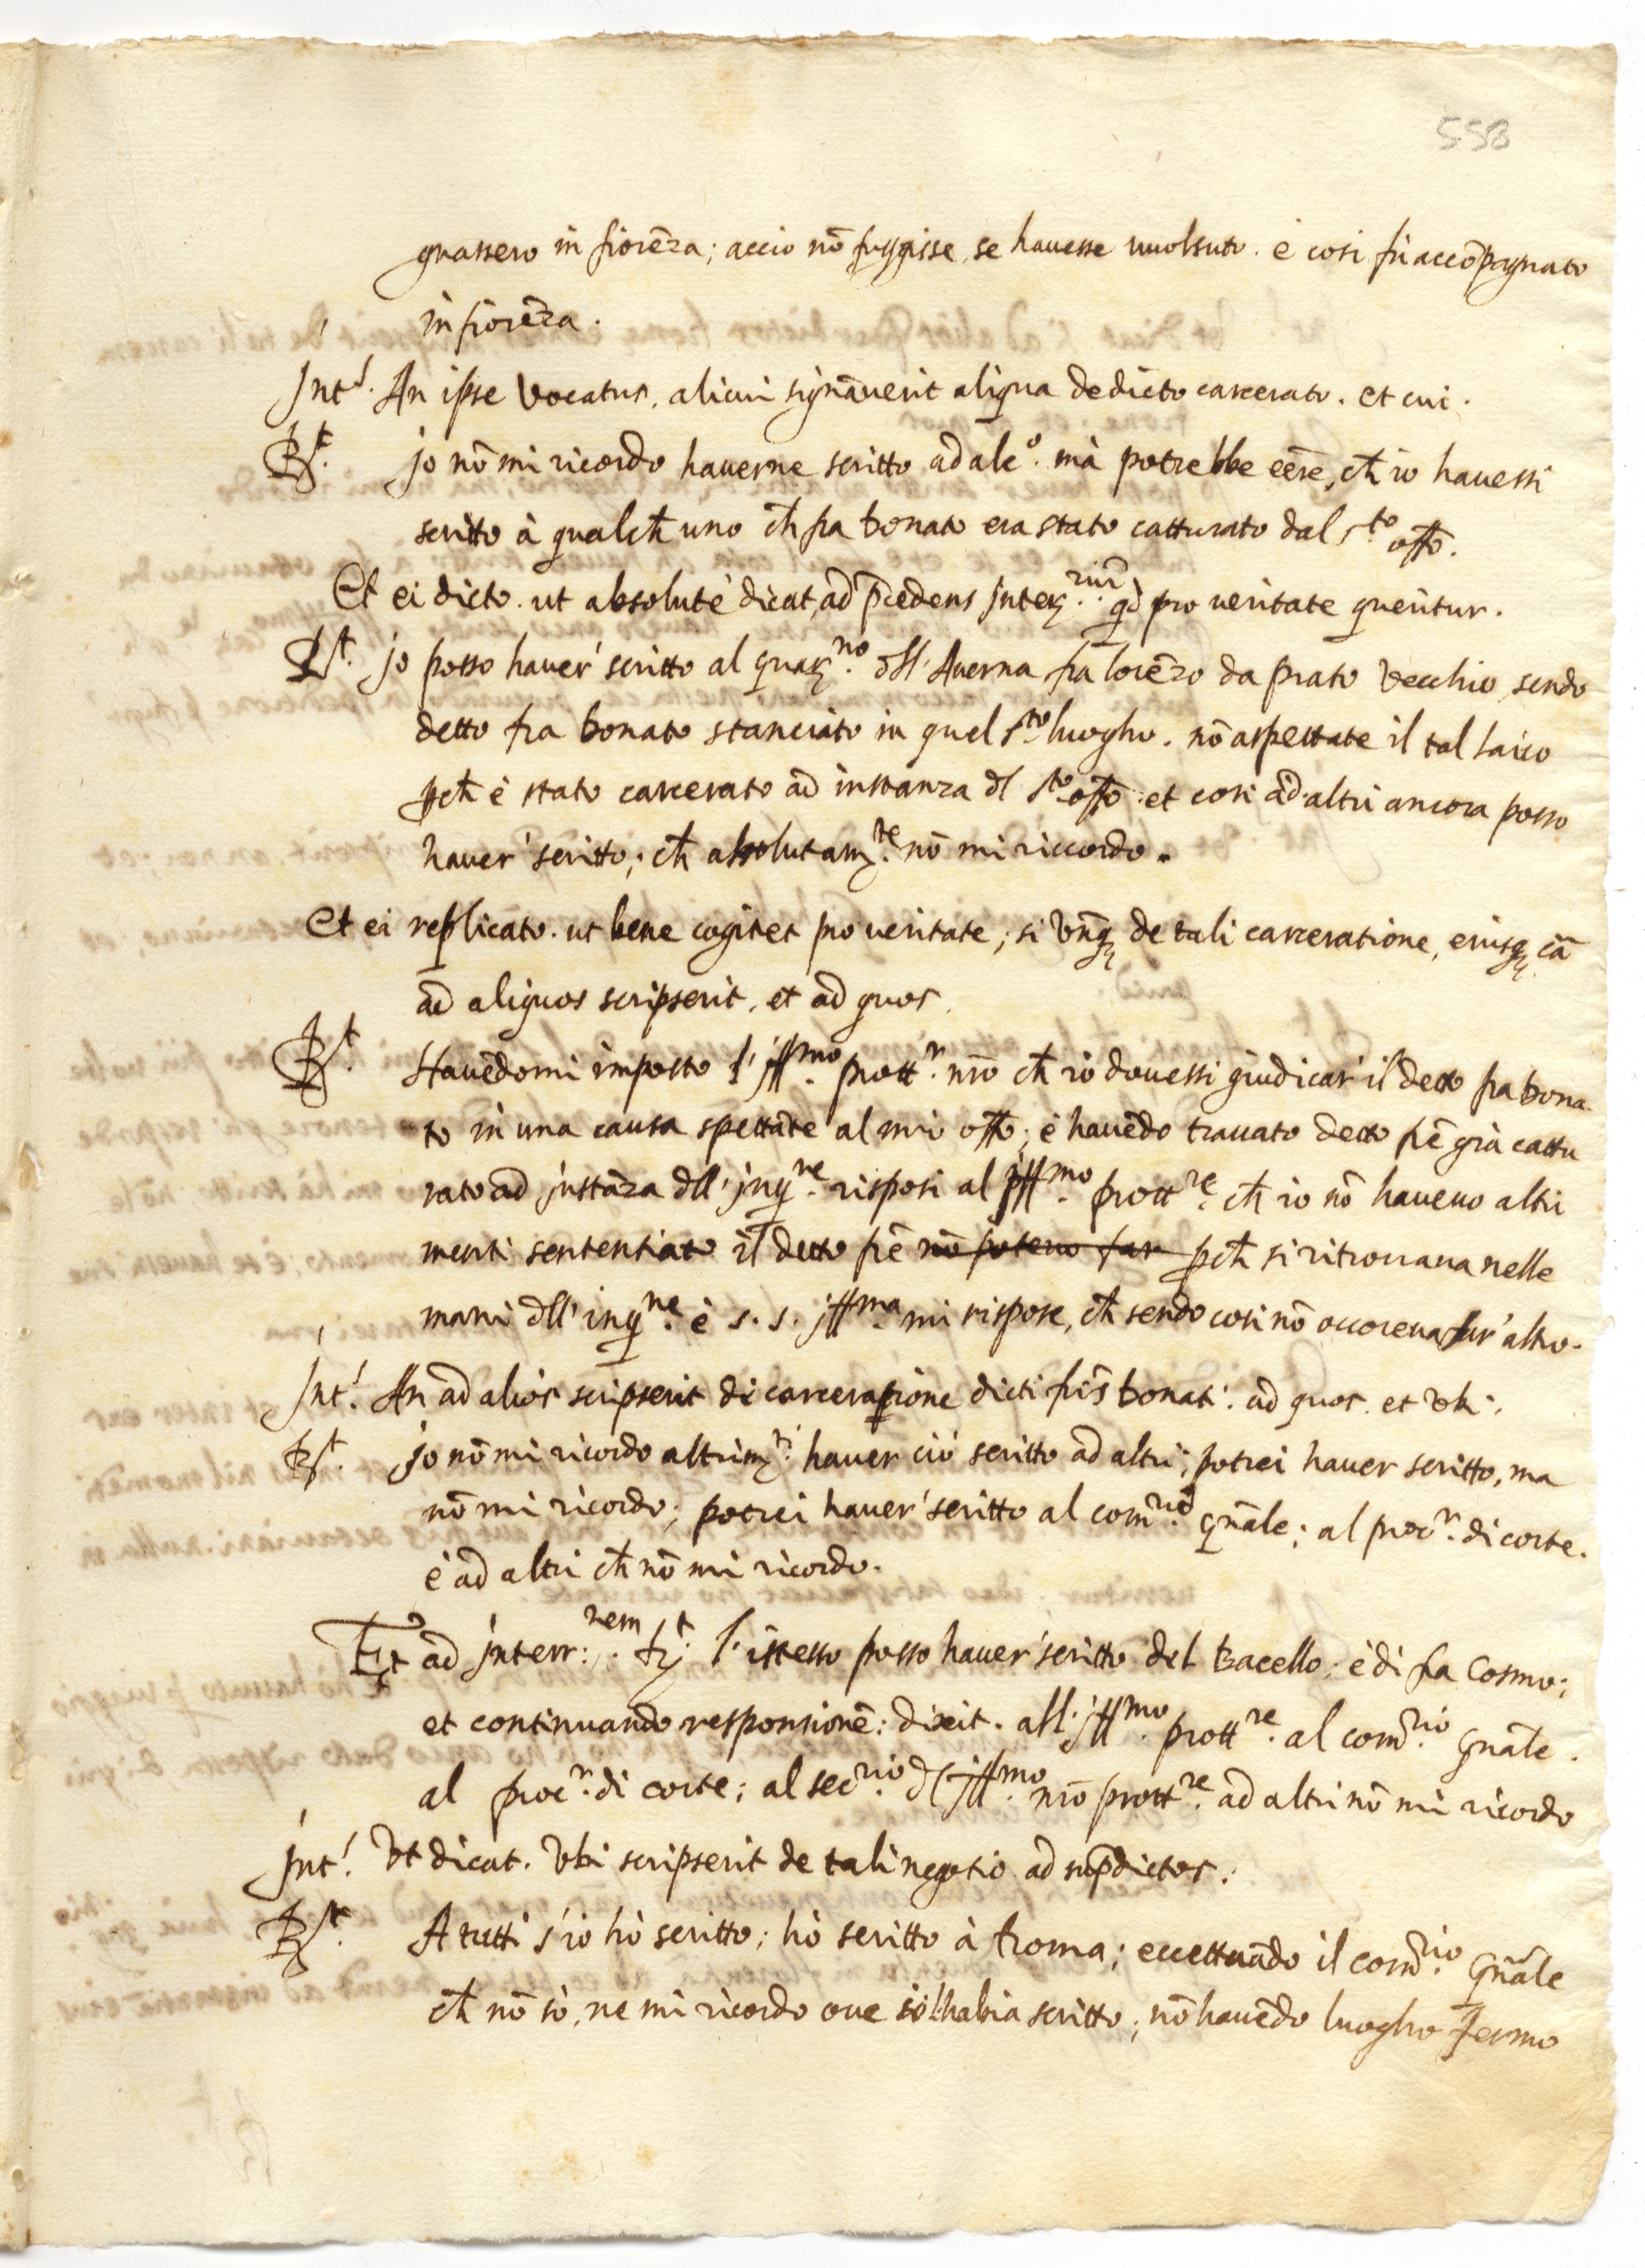 553
gnassero in fiorēza; accio nō fuggisse, se havesse uuolsuto. è cosi fù accōpagnato
in fiorēza.
Int.s An ipse Vocatus, alicui significāverit aliqua de dicto carcerato. et cui.
R.t jo nō mi ricordo haverne scritto ad alc.o mà potrebbe eēre, ch̄ io havessi
scritto à qualch̄ uno ch̄ fra Bonato era stato catturato dal s.to offō.
Et ei dicto. ut absolutè dicat, ad p̄cedens inter.rium q̄d pro veritate queritur.
R.t jo posso haver' scritto al guar.no dll'Averna fra lorēzo da prato Vecchio, sendo
detto fra Bonato stanciato in quel s.to luogho. nō aspettate il tal laico
pch̄ è stato carcerato ad instanza dl s.to offō. et cosi ad altri ancora posso
haver' scritto; ch̄ absolutam.te nō mi riccordo.
Et ei replicato. ut bene cogitet pro veritate; si vnq̄ de tali carceratione, eiusq̄ cā
ad aliquos scripserit, et ad quos.
R.t Havēdomi imposto l'Ill.mo prott.r nr̄o ch̄ io dovessi giudicar' il detto fra Bona-
to in una causa spettāte al mio offō; è havēdo trauato detto fr̄e già cattu
rato ad instāza dll'inq.ne risposi al Ill.mo prott.re ch̄ io nō havevo altri
menti sententiato il detto fr̄e nō potevo far pch̄ si ritrovava nelle
mani dll'inq.ne è s. s. Ill.ma mi rispose, ch̄ sendo cosi nō occoreva far' altro.
Int.s An ad alios scripserit di carceratione dicti fr̄is Bonati. ad quos. et vbi.
R.t jo nō mi ricordo altrim.ti haver ciò scritto ad altri; potrei haver scritto, ma
nō mi ricordo; potrei haver' scritto al com.rio gn̄ale; al proc.r di corte.
è ad altri ch̄ nō mi ricordo.
Et ad interr:nem R.t l'istesso posso haver' scritto del Bacello; è di fra Cosmo;
et continuando responsionē: dixit. all'Ill.mo prott.re al com.rio gn̄ale.
al proc.r di corte; al sec.rio dl Ill.mo nr̄o prott.re ad altri nō mi ricordo
Int.s Vt dicat. Vbi scripserit de tali negotio ad sup̄dictos.
R.t A tutti s'io hò scritto; hò scritto à Roma; eccettuādo il com.rio gn̄ale
ch̄ nō sò, ne mi ricordo ove io l'habia scritto; nō havēdo luogho fermo